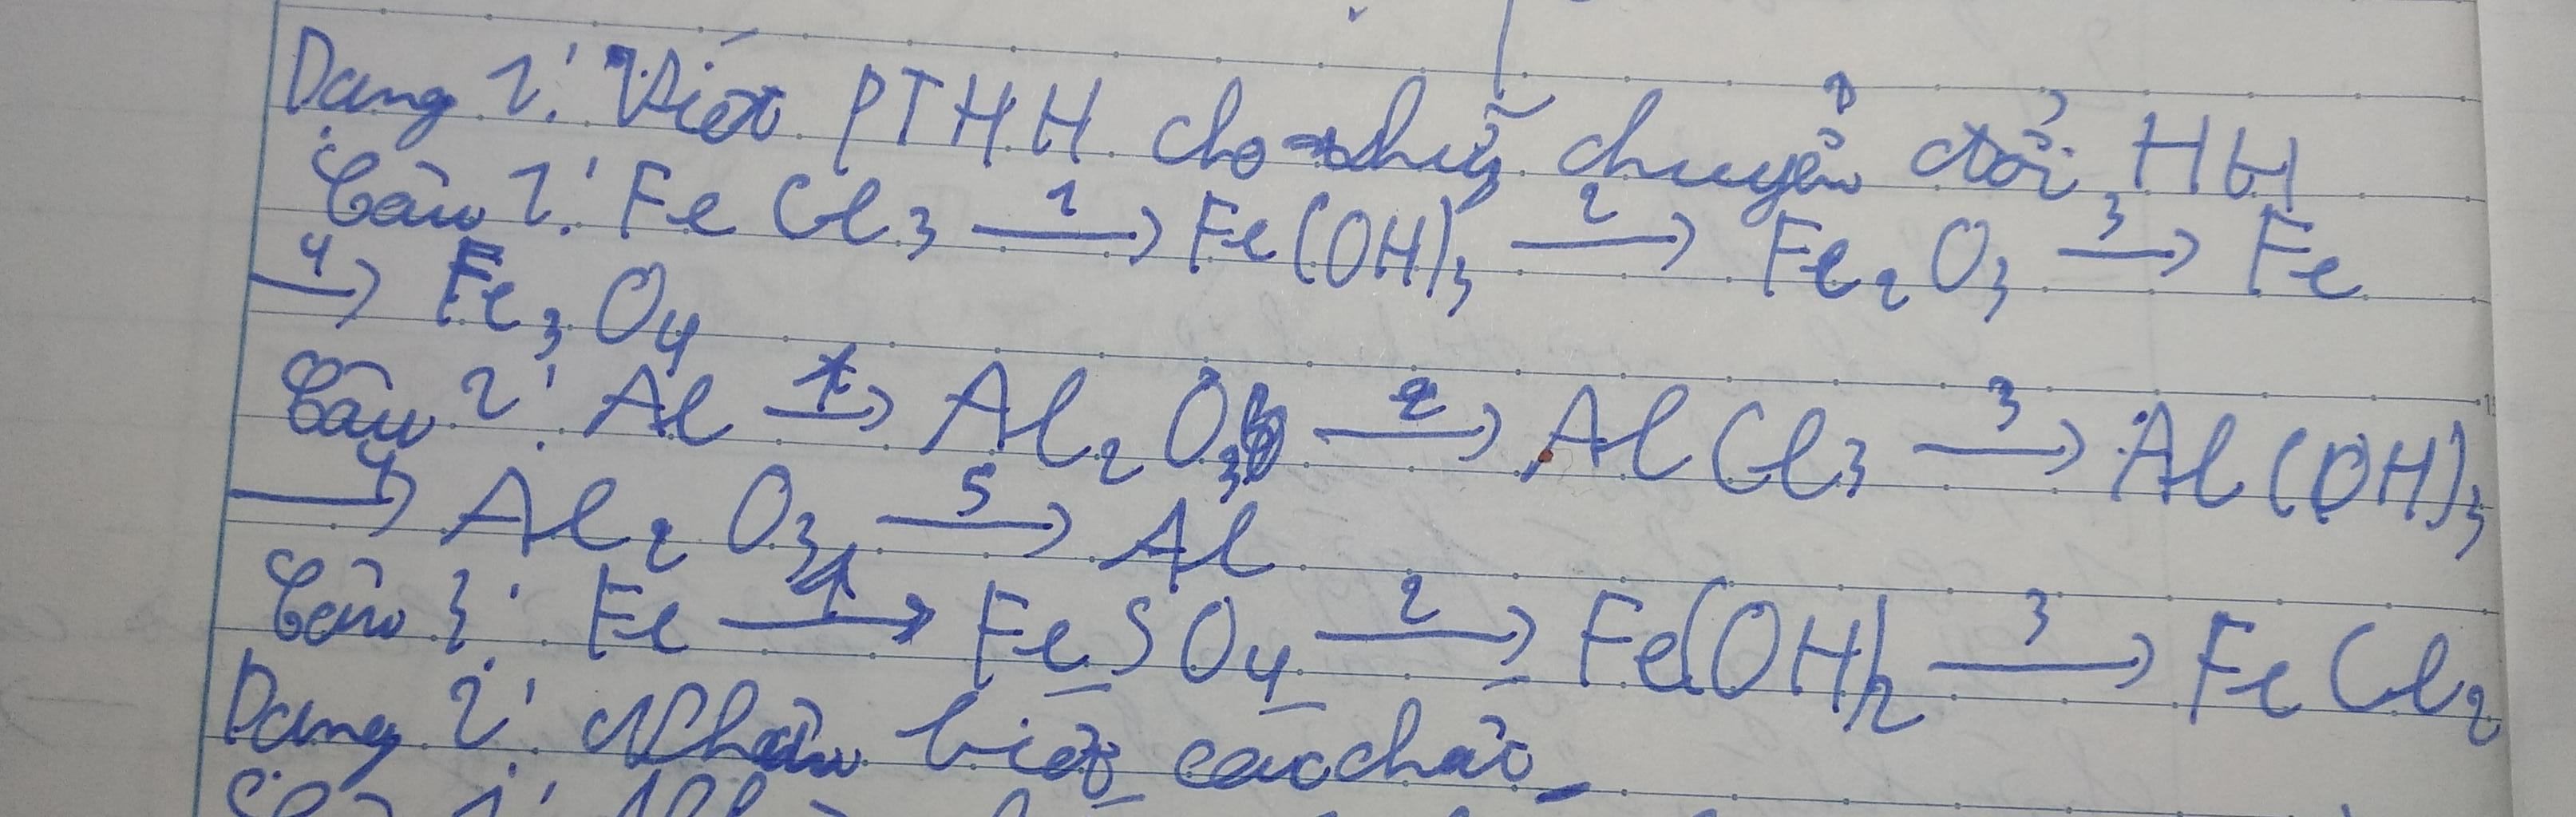 Dạng 1: Viết PTHH cho chuỗi chuyển đổi HH
Câu 1: FeCl3 →1 Fe(OH)3 →2 Fe2O3 →3 Fe
→4 Fe3O4
Câu 2: Al →1 Al2O3 →2 AlCl3 →3 Al(OH)3
→4 Al2O3 →5 Al
Câu 3: Fe →1 FeSO4 →2 Fe(OH)2 →3 FeCl2
Dạng 2: Nhận biết các chất